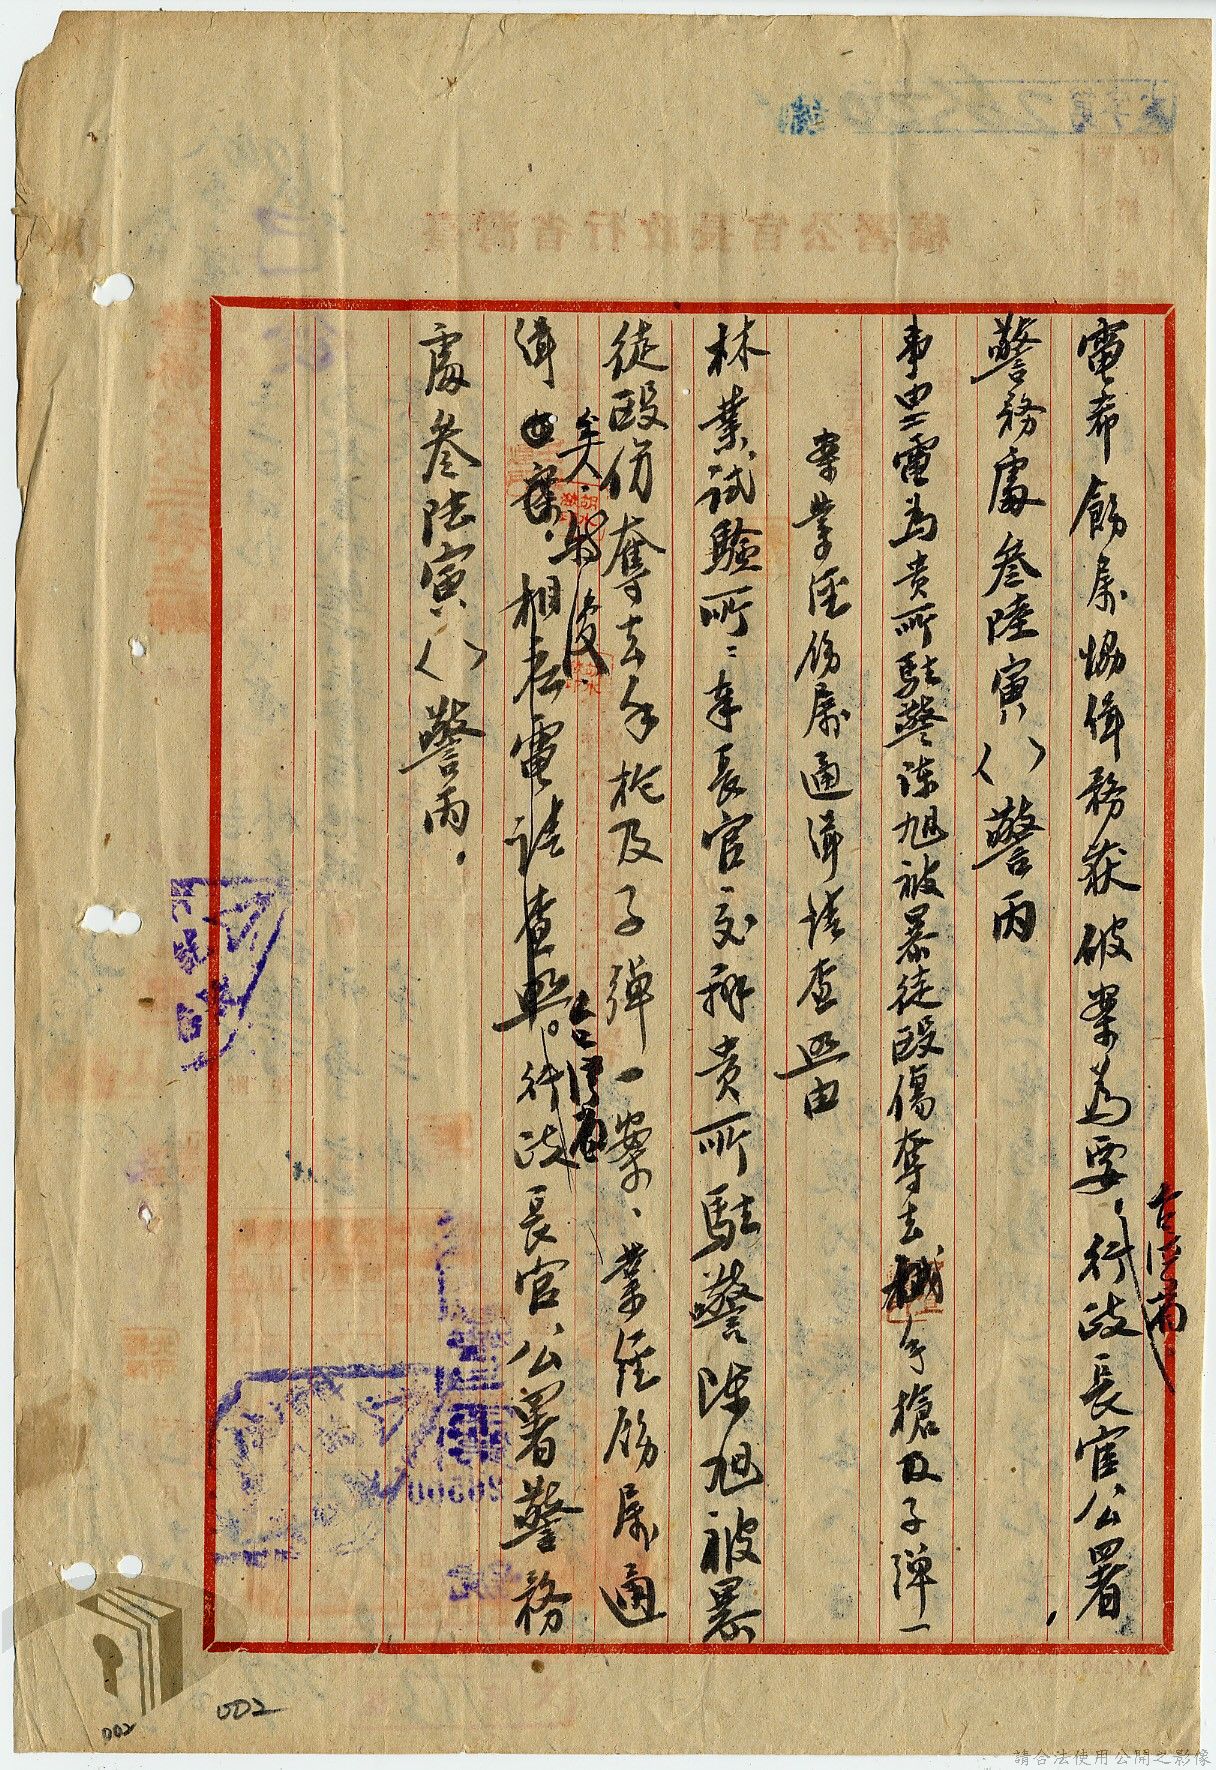 電希飭屬協緝務獲破案為要，台灣省行政長官公署
警務處叁陸寅（ ）警丙
事由：電為貴所駐警陳旭被暴徒毆傷奪去手槍及子彈一
案業經飭屬通緝請查照由
林業試驗所：奉長官交辦貴所駐警陳旭被暴
徒毆傷奪去手槍及子彈一案、業經飭屬通
緝矣。相應電請查照。台灣省行政長官公署警務
處叁陸寅（ ）警丙。
臺灣省行政長官公署稿
002
002
請合法使用公開之影像